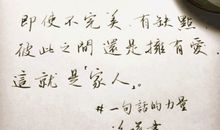 即使不完美、有缺點，
彼此之間還是擁有愛，
這就是「家人」。
#一句話的力量